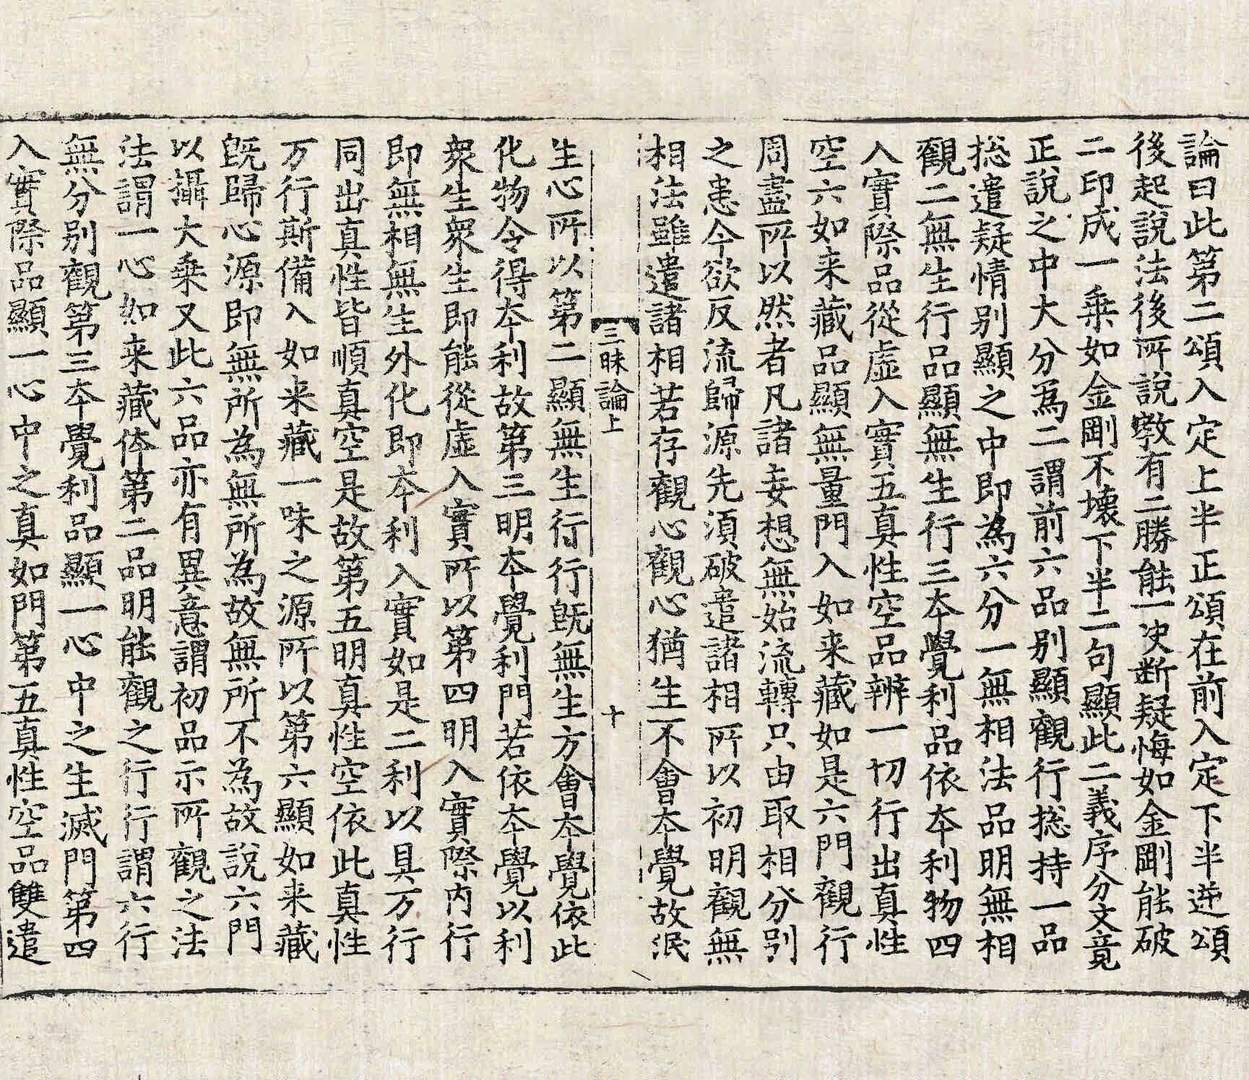 論曰此第二頌入定上半正頌在前入定下半逆頌
後起說法後所說敎有二勝能一决斷疑悔如金剛能破
二印成一乘如金剛不壞下半二句顯此二義序分文竟
正說之中大分為二謂前六品别顯觀行捴持一品
捴遣疑情别顯之中即為六分一無相法品明無相
觀二無生行品顯無生行三夲覺利品依夲利物四
入實際品從虛入實五真性空品辨一切行出真性
空六如来藏品顯無量門入如来藏如是六門觀行
周盡所以然者凡諸妄想無始流轉只由取相分别
之患今欲反流歸源先須破遣諸相所以初明觀無
相法雖遣諸相若存觀心觀心猶生不會夲覺故泯
三昧論上 十
生心所以第二顯無生行行旣無生方會夲覺依此
化物令得夲利故第三明夲覺利門若依夲覺以利
衆生衆生即能從虛入實所以第四明入實際内行
即無相無生外化即夲利入實如是二利以具万行
同出真性皆順真空是故第五明真性空依此真性
万行斯備入如来藏一味之源所以第六顯如来藏
旣歸心源即無所為無所為故無所不為故說六門
以攝大乘又此六品亦有異意謂初品示所觀之法
法謂一心如来藏体第二品明能觀之行行謂六行
無分别觀第三夲覺利品顯一心中之生滅門第四
入實際品顯一心中之真如門第五真性空品雙遣